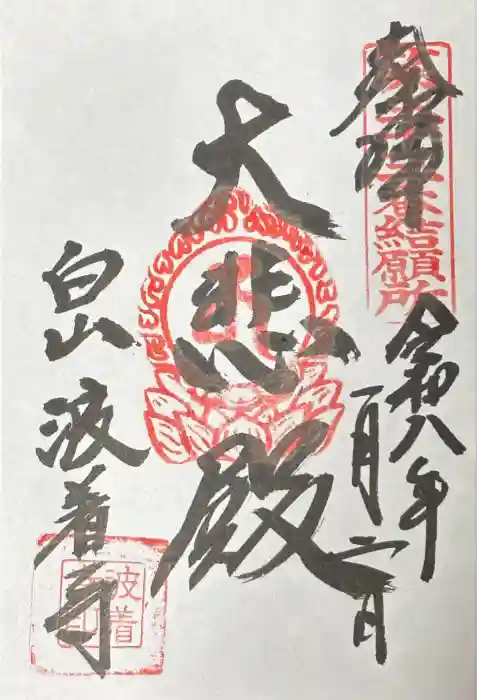 奉拝
令和八年
一月二日
大悲殿
白山
波着寺
結願所
波着